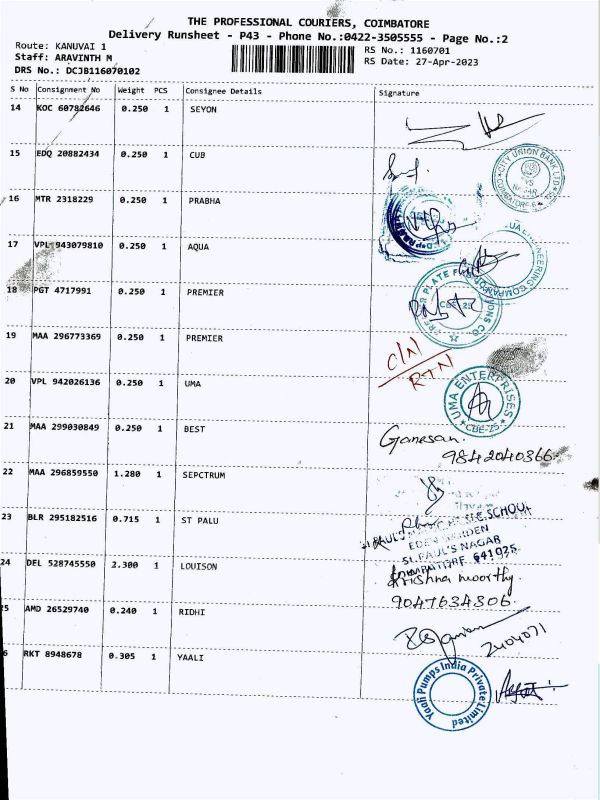 THE PROFESSIONAL COURIERS, COIMBATORE
Delivery Runsheet - P43 - Phone No.:0422-3505555 - Page No.:2
Route: KANUVAI 1
RS No.: 1160701
Staff: ARAVINTH M
RS Date: 27-Apr-2023
DRS No.: DCJB116070102
S No Consignment No Weight PCS Consignee Details Signature
14 KOC 60782646 0.250 1 SEYON
15 EDQ 20882434 0.250 1 CUB
CITY UNION BANK LTD
16 MTR 2318229 0.250 1 PRABHA
17 VPL 943079810 0.250 1 AQUA
ENGINEERING COMPANY
18 PGT 4717991 0.250 1 PREMIER
PLATE
CBE-25
19 MAA 296773369 0.250 1 PREMIER
C/N
RTN
20 VPL 942026136 0.250 1 UMA
UMA ENTERPRISES
CBE-25
21 MAA 299030849 0.250 1 BEST
Ganesan.
9842040366
22 MAA 296859550 1.280 1 SEPCTRUM
23 BLR 295182516 0.715 1 ST PALU
SCHOOL
EDEN GARDEN
ST.PAUL'S NAGAR
COIMBATORE 641025
24 DEL 528745550 2.300 1 LOUISON
Krishna moorthy.
9047634306.
5 AMD 26529740 0.240 1 RIDHI
2404071
6 RKT 8948678 0.305 1 YAALI
Yaali Pumps India Private Limited